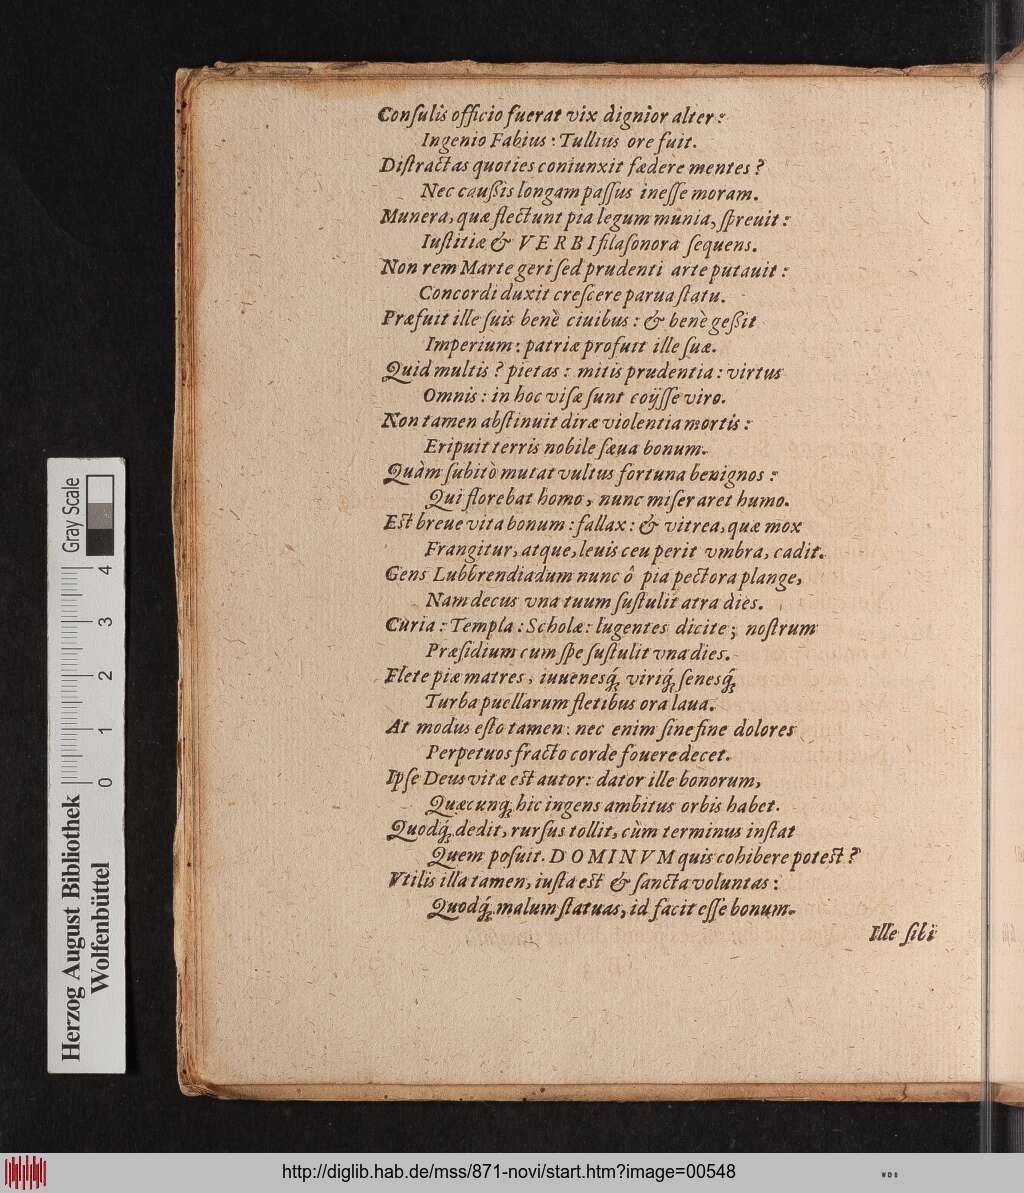 Conſulis officio fuerat vix dignior alter:
Ingenio Fabius: Tullius ore fuit.
Diſtractas quoties coniunxit fædere mentes?
Nec caußis longam paſſus ineſſe moram.
Munera, quæ flectunt pia legum munia, ſpreuit:
Iuſtitiæ & VERBI fila ſonora ſequens.
Non rem Marte geri ſed prudenti arte putauit:
Concordi duxit creſcere parua ſtatu.
Præfuit ille ſuis benè ciuibus: & benè geßit
Imperium: patriæ profuit ille ſuæ.
Quid multis? pietas: mitis prudentia: virtus
Omnis: in hoc viſæ ſunt coijſſe viro.
Non tamen abſtinuit diræ violentia mortis:
Eripuit terris nobile ſæua bonum.
Quàm ſubitò mutat vultus fortuna benignos:
Qui florebat homo, nunc miſer aret humo.
Eſt breue vita bonum: fallax: & vitrea, quæ mox
Frangitur, atque, leuis ceu perit vmbra, cadit.
Gens Lubbrendiadum nunc ô pia pectora plange,
Nam decus vna tuum ſuſtulit atra dies.
Curia: Templa: Scholæ: lugentes dicite; noſtrum
Præſidium cum ſpe ſuſtulit vna dies.
Flete piæ matres, iuuenesq́; viriq́; ſenesq́;
Turba puellarum fletibus ora laua.
At modus eſto tamen: nec enim ſine fine dolores
Perpetuos fracto corde fouere decet.
Ipſe Deus vitæ eſt autor: dator ille bonorum,
Quæcunq; hic ingens ambitus orbis habet.
Quodq́; dedit, rurſus tollit, cùm terminus inſtat
Quem poſuit. DOMINVM quis cohibere poteſt?
Vtilis illa tamen, iuſta eſt & ſancta voluntas:
Quodq́; malum ſtatuas, id facit eſſe bonum.
Ille ſibi
Herzog August Bibliothek
Wolfenbüttel
0 1 2 3 4
Gray Scale
http://diglib.hab.de/mss/871-novi/start.htm?image=00548
WDB